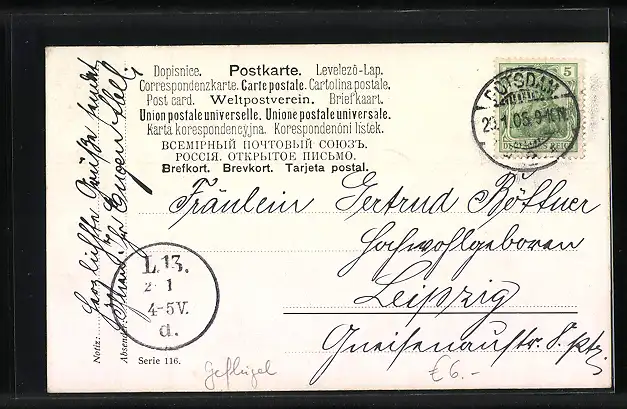 Dopisnice. Postkarte. Levelező-Lap.
Correspondenzkarte. Carte postale. Cartolina postale.
Post card. Weltpostverein. Briefkaart.
Union postale universelle. Unione postale universale.
Karta korespondencyjna. Korespondenóni lístek.
ВСЕМІРНЫЙ ПОЧТОВЫЙ СОЮЗЪ.
РОССІЯ. ОТКРЫТОЕ ПИСЬМО.
Brefkort. Brevkort. Tarjeta postal.
5 5
POTSDAM
DEUTSCHES REICH
Fräulein Gertrud Böttner
Hochwohlgeboren
Leipzig
Gneisenaustr. 8. ptr.
L. 13.
2 1
4-5V.
d.
Herzlichste Grüße sendet
Ihr Eugen
Notiz:
Absender:
Serie 116.
Geflügel
€ 6.-